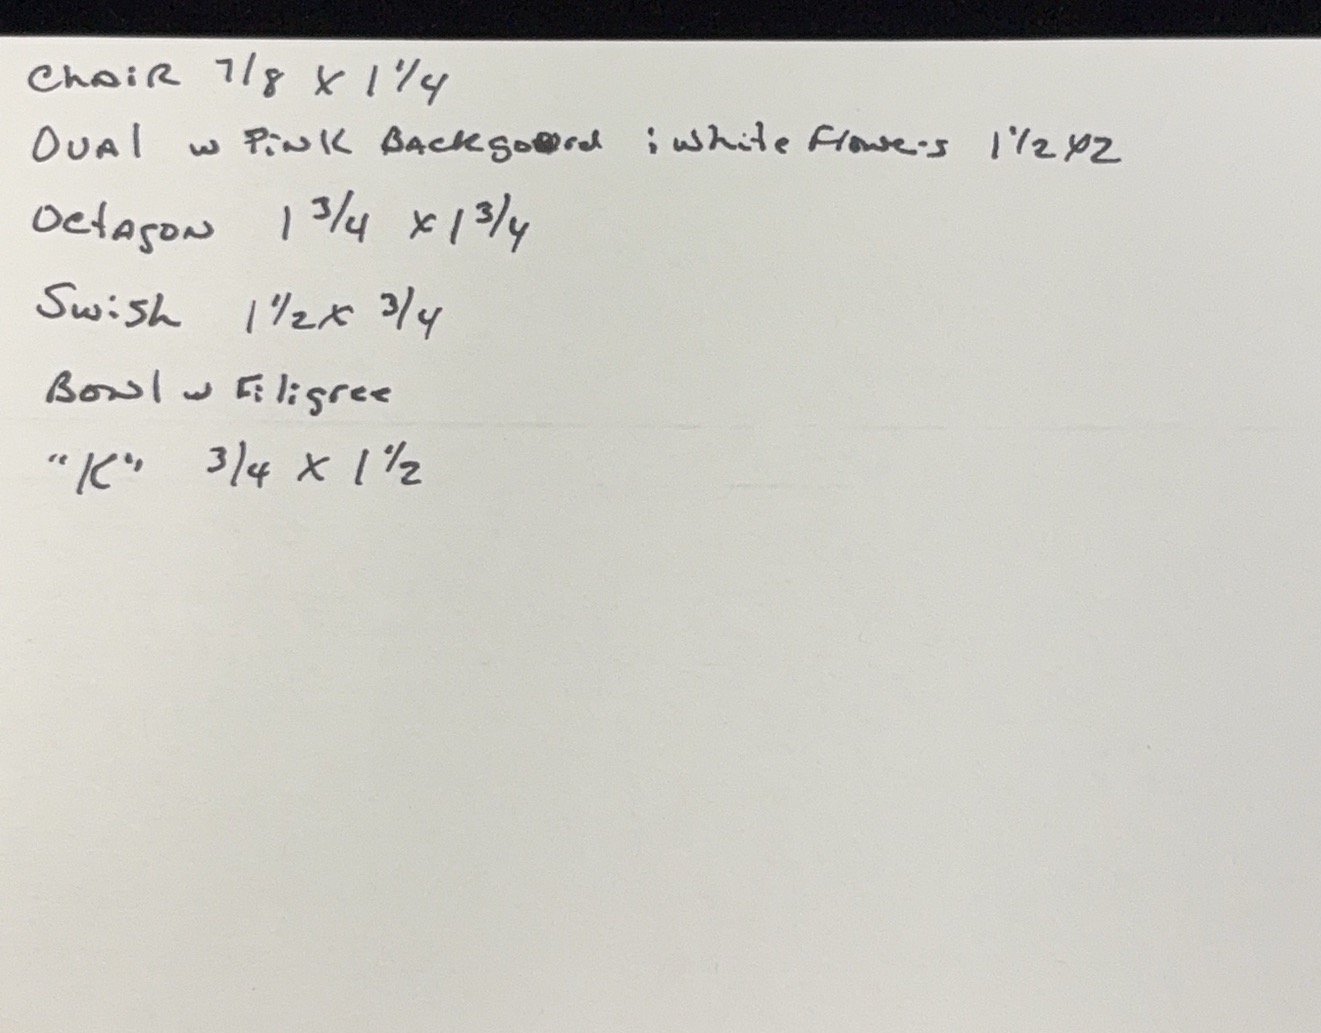 Chair 7/8 x 1 1/4
Oval w Pink Background ; white Flowers 1 1/2 x 2
Octagon 1 3/4 x 1 3/4
Swish 1 1/2 x 3/4
Bowl w Filigree
"K" 3/4 x 1 1/2